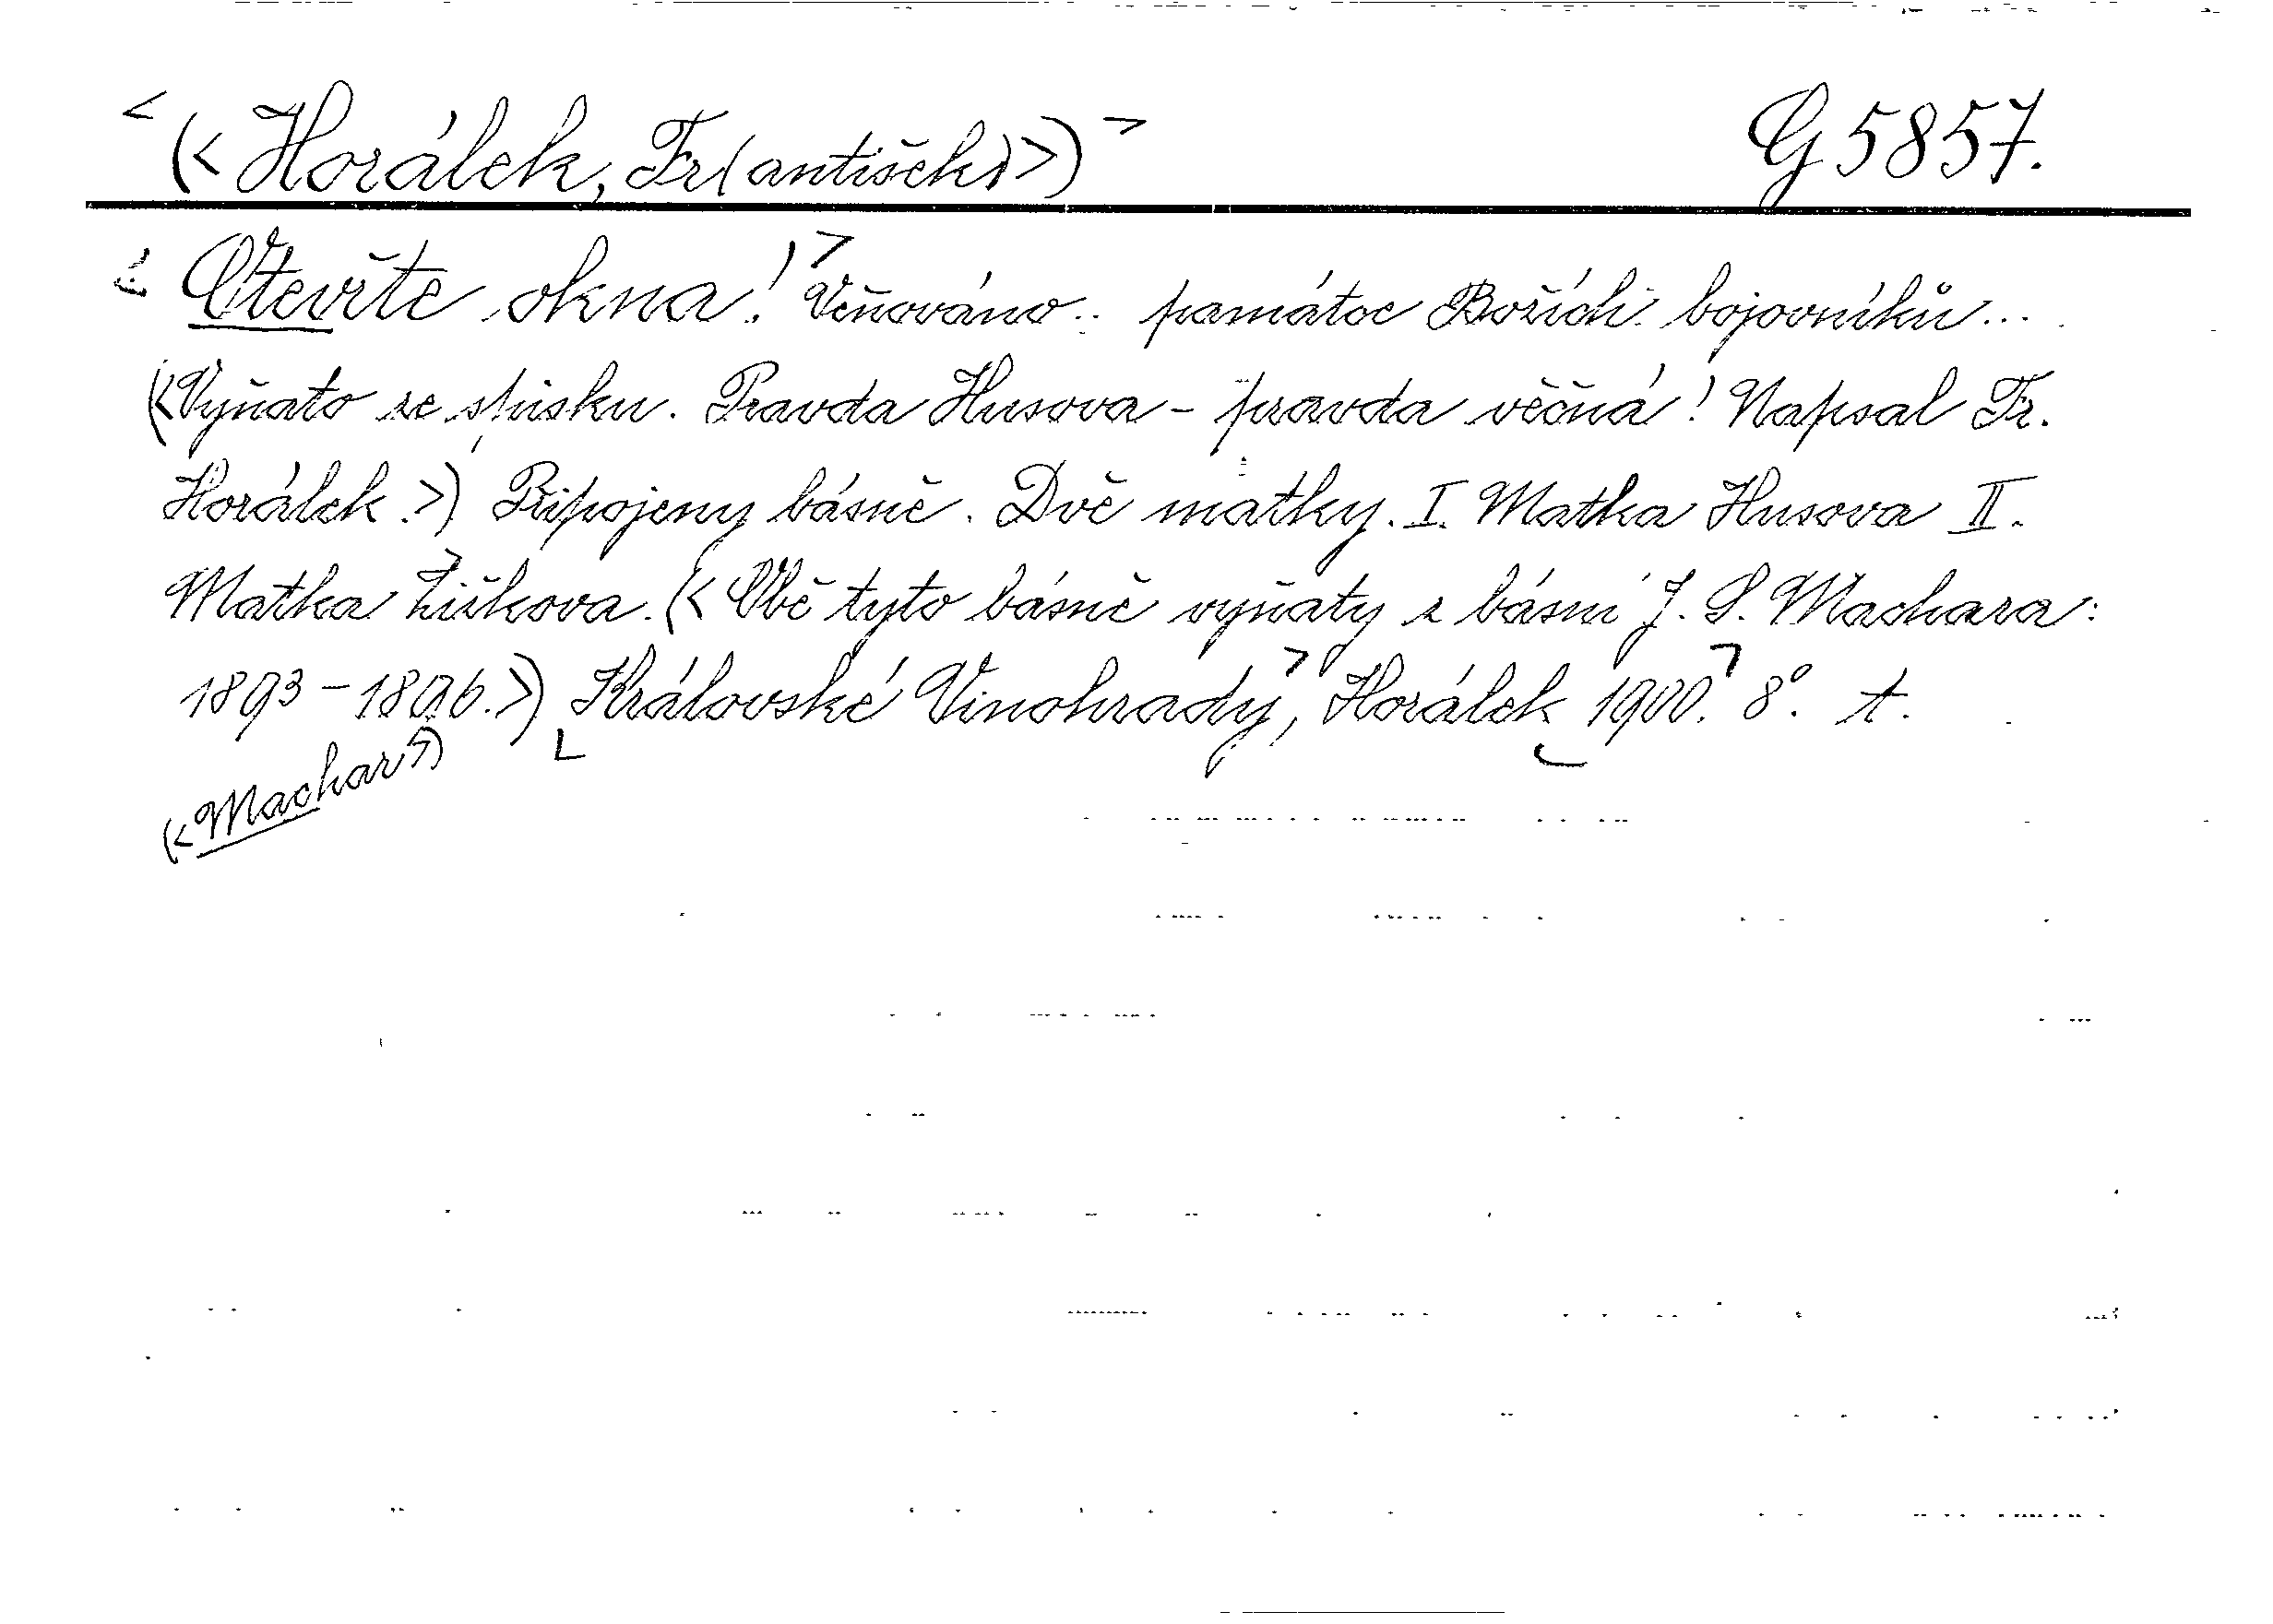 <(<Horálek, Fr(antišek)>)> G 5857.
Otevřte okna!)> Věňováno.. památce Božích bojovníků...
(<Vyňato ze spisku. Pravda Husova - pravda věčná! Napsal Fr.
Horálek.>) Připojeny básně. Dvě matky. I. Matka Husova II.
Matka Žižkova. (<Obě tyto básně vyňaty z básní J. S. Machara:
1893-1896.>) Královské Vinohrady, Horálek 1900. 8°. t.
(<Machar>)